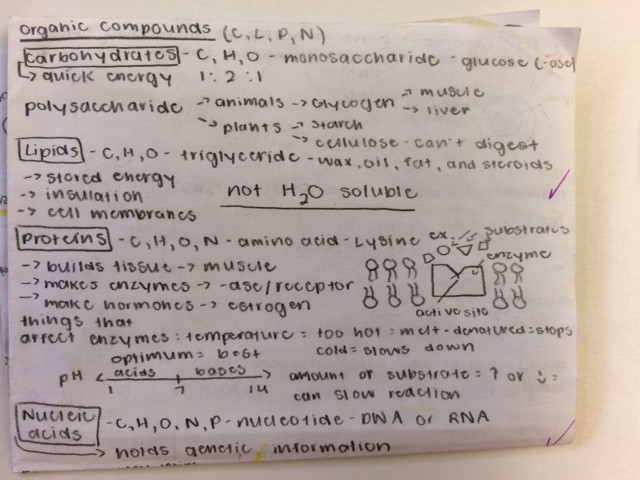 organic compounds (C, L, P, N)
Carbohydrates - C, H, O - monosaccharide - glucose (-ose)
↳ quick energy 1:2:1
polysaccharide → animals → Glycogen → muscle
→ liver
→ plants → starch
→ cellulose - can't digest
Lipids - C, H, O - triglyceride - wax, oil, fat, and steroids
→ stored energy
→ insulation
→ cell membranes
not H2O soluble
Proteins - C, H, O, N - amino acid - Lysine ex. substrates
→ builds tissue → muscle enzyme
→ makes enzymes → -ase/receptor
→ make hormones → estrogen active site
things that
affect enzymes: temperature = too hot = melt - denatured = stops
optimum = best cold = slows down
pH acids bases amount of substrate = ↑ or ↓ =
1 7 14 can slow reaction
Nucleic acids - C, H, O, N, P - nucleotide - DNA or RNA
→ holds genetic information